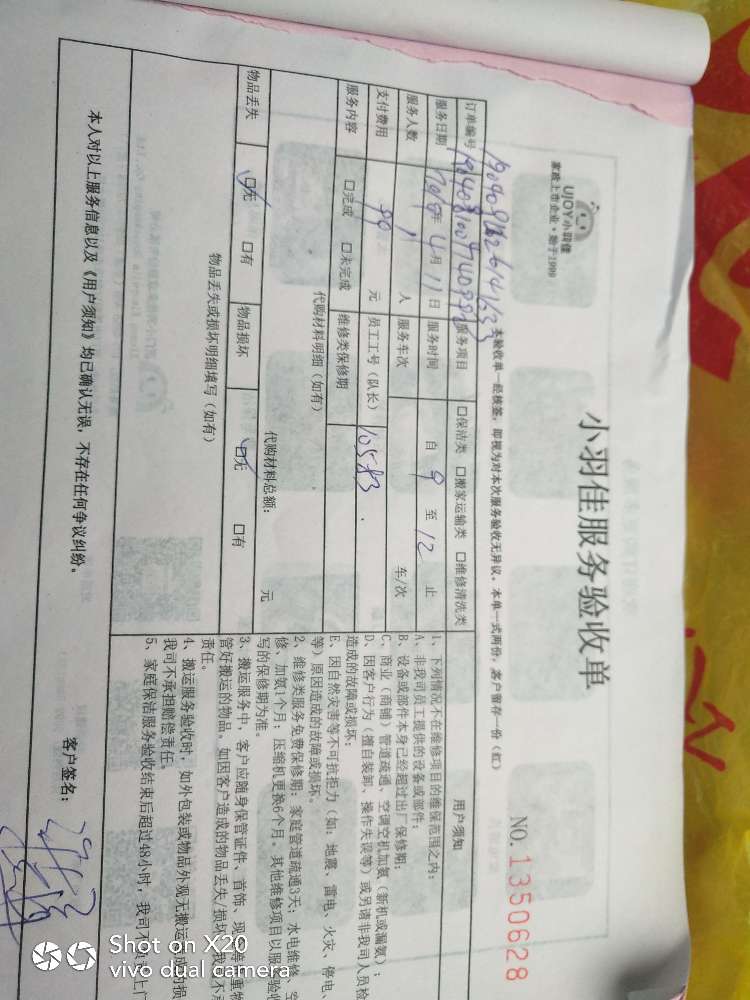 UJOY小羽佳
家政上市企业·始于1999
小羽佳服务验收单
NO.1350628
本验收单一经核签，即视为对本次服务验收无异议。本单一式两份，客户留存一份（红）
订单编号
服务项目 □保洁类 □搬家运输类 □维修清洗类
服务日期 年 4月 11日 服务时间 自 9 至 12 止
服务人数 1 人 服务车次 车/次
支付费用 99 元 员工工号（队长） 10583
服务内容 □完成 □未完成 维修类保修期
代购材料明细（如有）
代购材料总额： 元
物品丢失 □无 □有 物品损坏 □无 □有
物品丢失或损坏明细填写（如有）
用户须知
1、下列情况不在维修项目的维保范围之内：
A、非我司员工提供的设备或部件；
B、设备或部件本身已经超过出厂保修期；
C、商业（商铺）管道疏通、空调空机加氨（新机或漏氨）；
D、因客户行为（擅自装卸、操作失误等）或另请非我司人员检
造成的故障或损坏；
E、因自然灾害等不可抗拒力（如：地震、雷电、火灾、停电、
等）原因造成的故障或损坏。
2、维修类服务免费保修期：家庭管道疏通3天；水电维修、空
修、加氨1个月；压缩机更换6个月。其他维修项目以服务验收
写的保修期为准。
3、搬运服务中，客户应随身保管证件、首饰、现
管好搬运的物品。如因客户造成的物品丢失/损坏
责任。
4、搬运服务验收时，如外包装或物品外观无搬运
我司不承担赔偿责任。
5、家庭保洁服务验收结束后超过48小时，我司不
本人对以上服务信息以及《用户须知》均已确认无误，不存在任何争议纠纷。
客户签名：
Shot on X20
vivo dual camera